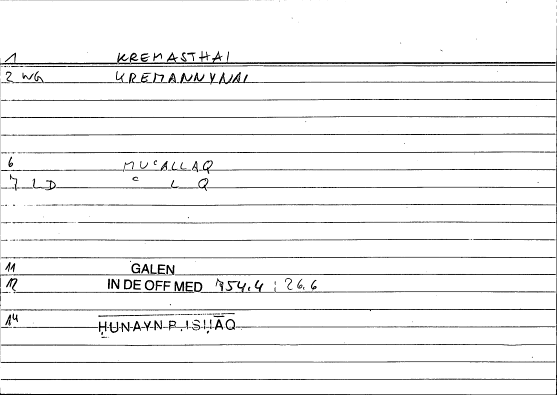 1 KREMASTHAI
2 WG KREMANNYNAI
6 MUʿALLAQ
7 LD ʿ L Q
11 GALEN
12 IN DE OFF MED 754.4 : 26.6
14 ḤUNAYN B. ISḤĀQ